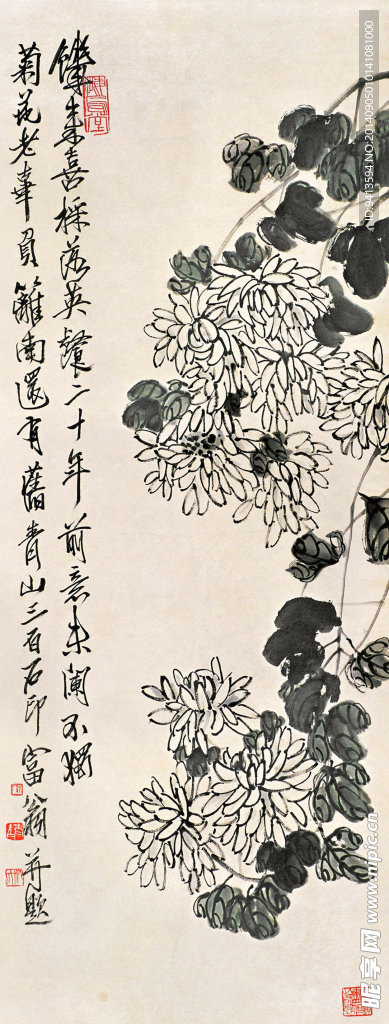 饞來喜採落英餐二十年前意未闌不獨
菊花老辜負籬南還有舊青山三百石印富翁并題
ID:9413594,NO:20140905010141081000
昵享网 www.nipic.cn